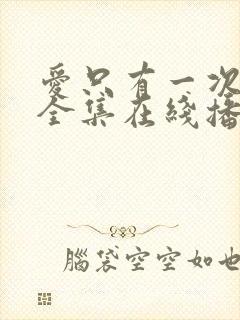 爱只有一次
全集在线播
脑袋空空如也